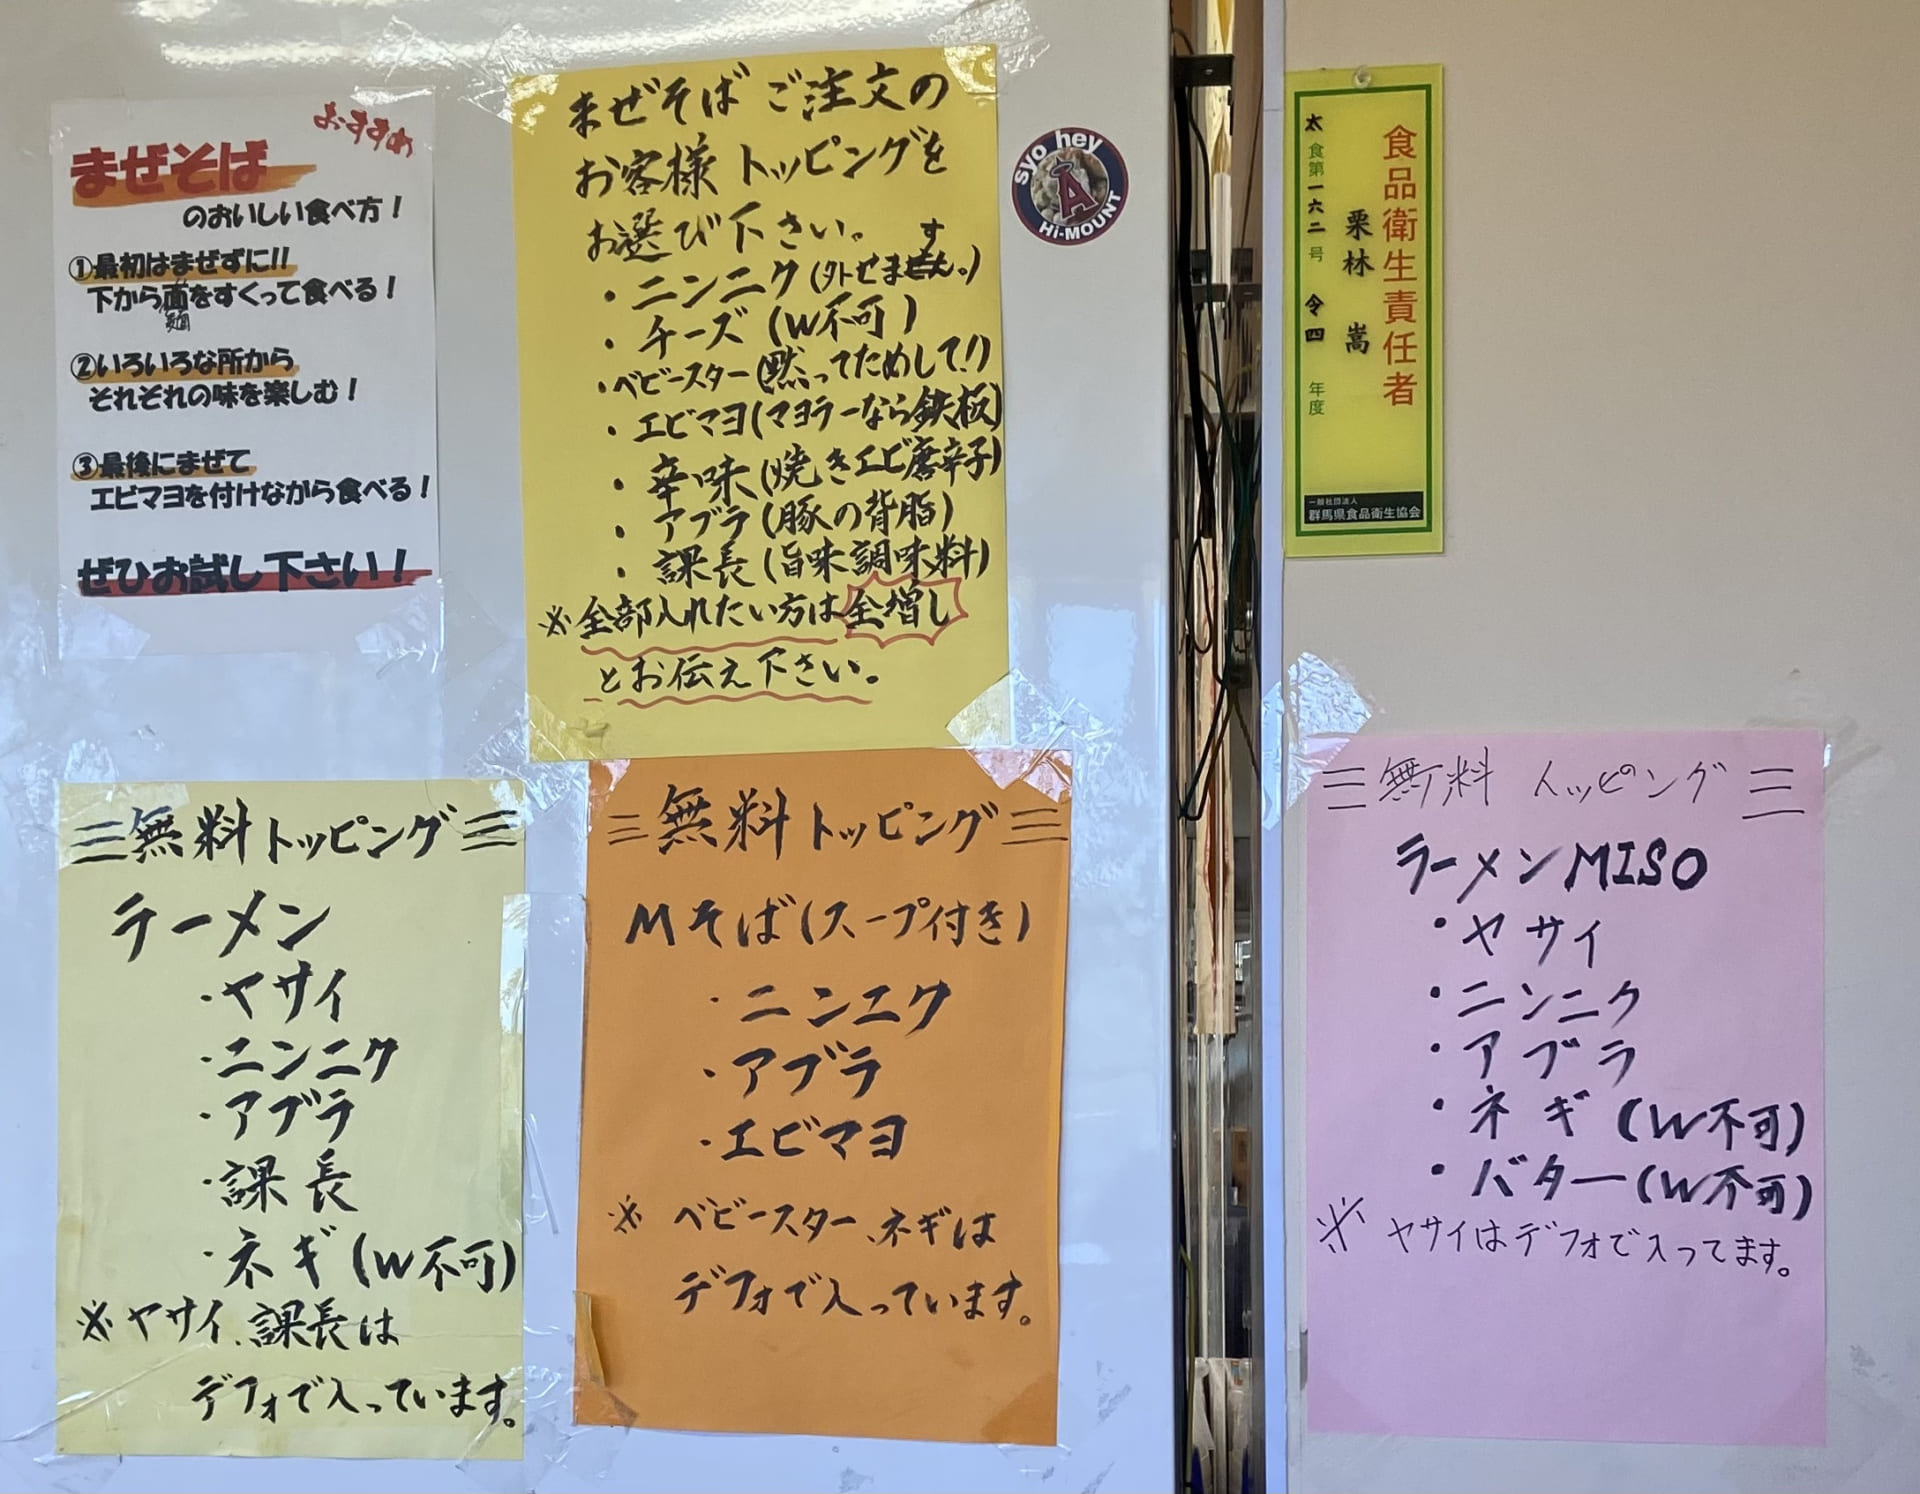 おすすめ
まぜそば
のおいしい食べ方！
①最初はまぜずに!!
下から面をすくって食べる！
麺
②いろいろな所から
それぞれの味を楽しむ！
③最後にまぜて
エビマヨを付けながら食べる！
ぜひお試し下さい！
まぜそば ご注文の
お客様 トッピングを
お選び下さい。
・ニンニク(外せます。)
・チーズ (W不可)
・ベビースター(黙ってためして!!)
・エビマヨ(マヨラーなら鉄板)
・辛味(焼きエビ唐辛子)
・アブラ(豚の背脂)
・課長(旨味調味料)
※全部入れたい方は全増し
とお伝え下さい。
syo hey
A
Hi-MOUNT
食品衛生責任者
栗林 嵩
太食第一六二号 令四 年度
一般社団法人
群馬県食品衛生協会
三無料トッピング三
ラーメン
・ヤサイ
・ニンニク
・アブラ
・課長
・ネギ(W不可)
※ヤサイ、課長は
デフォで入っています。
三無料トッピング三
Mそば(スープ付き)
・ニンニク
・アブラ
・エビマヨ
※ ベビースター、ネギは
デフォで入っています。
三無料 トッピング三
ラーメンMISO
・ヤサイ
・ニンニク
・アブラ
・ネギ(W不可)
・バター(W不可)
※ ヤサイはデフォで入ってます。